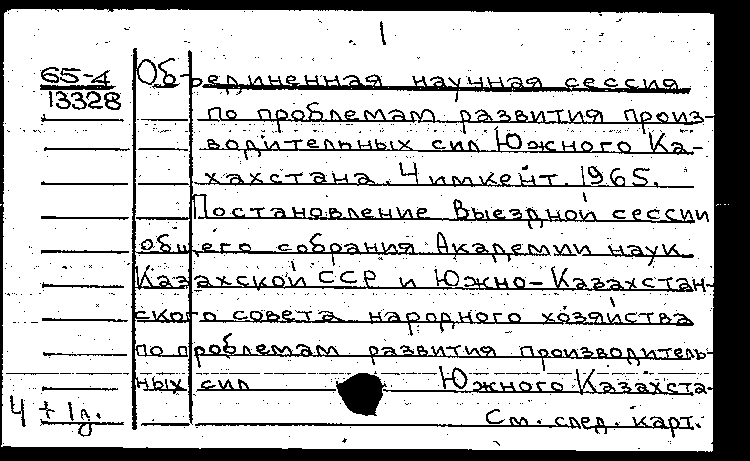 1
65-4
13328
Объединенная научная сессия
по проблемам развития произ-
водительных сил Южного Ка-
хахстана. Чимкент. 1965.
Постановление Выездной сессии
общего собрания Академии наук
Казахской ССР и Южно-Казахстан-
ского совета народного хозяйства
по проблемам развития производитель-
ных сил Южного Казахста-
4 + 1д.
См. след. карт.